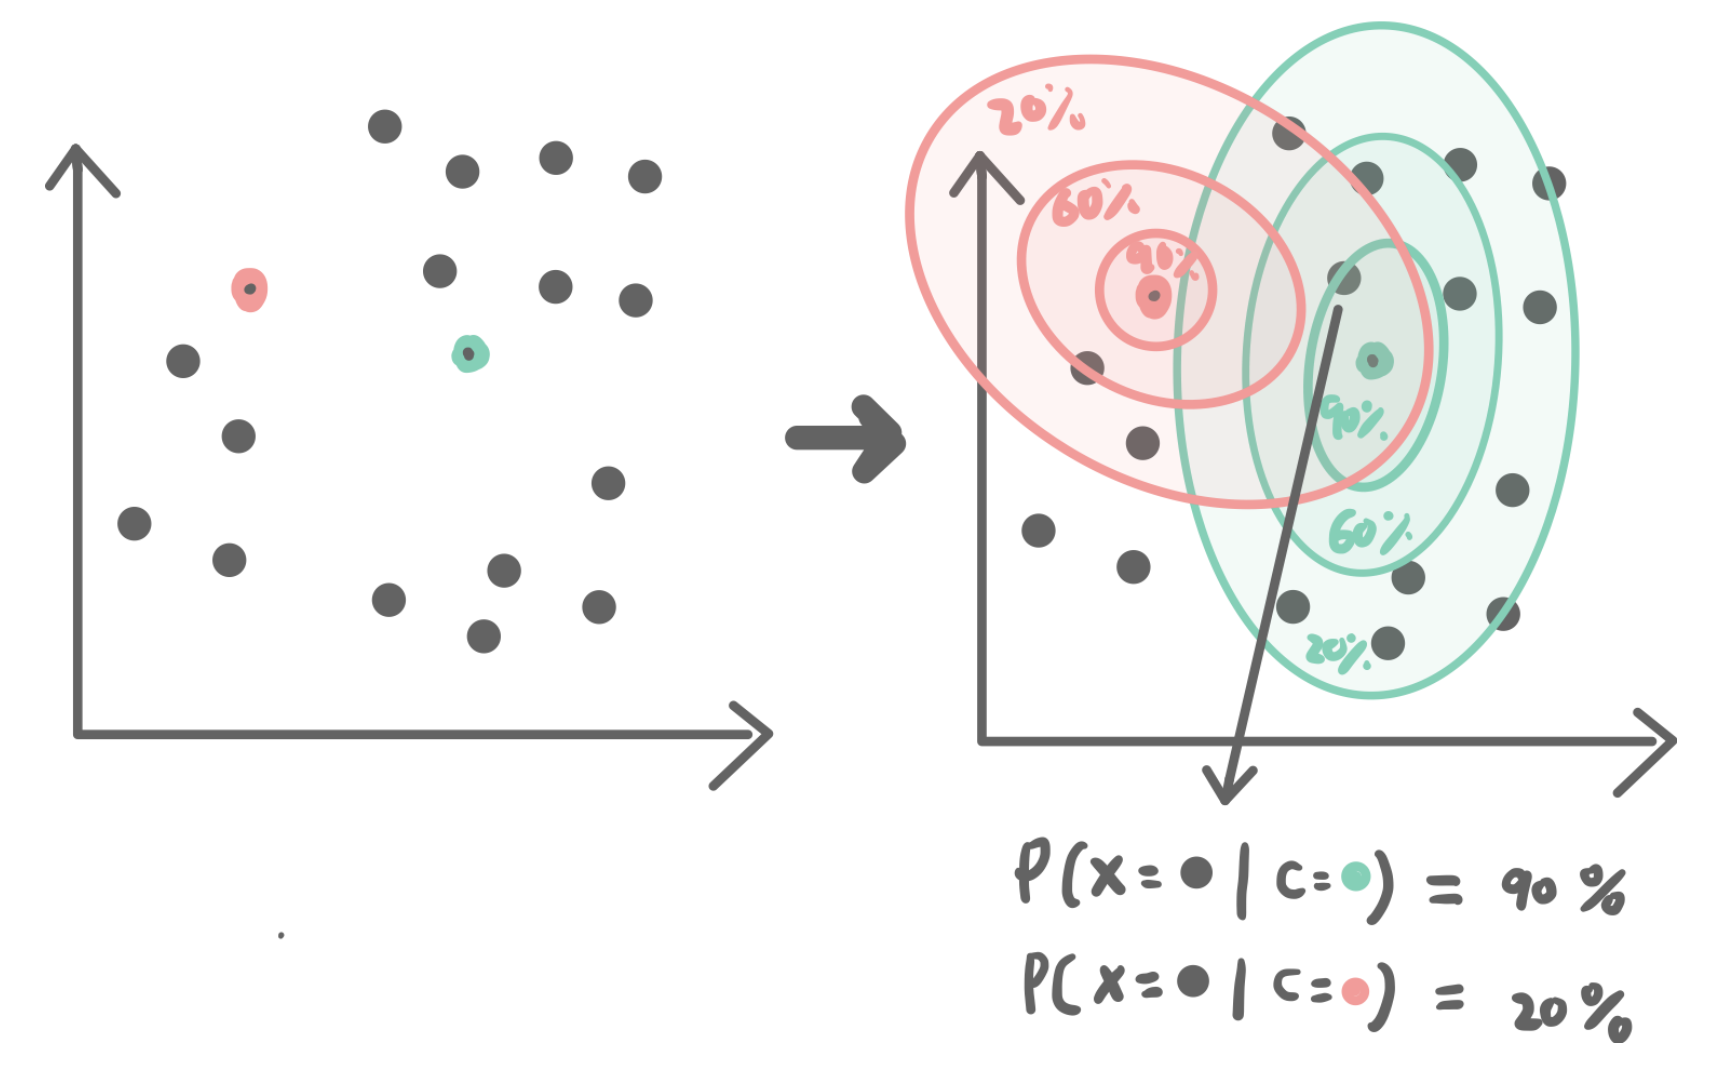 20%
60%
90%
90%
60%
20%
P(x=● | c=●) = 90%
P(x=● | c=●) = 20%